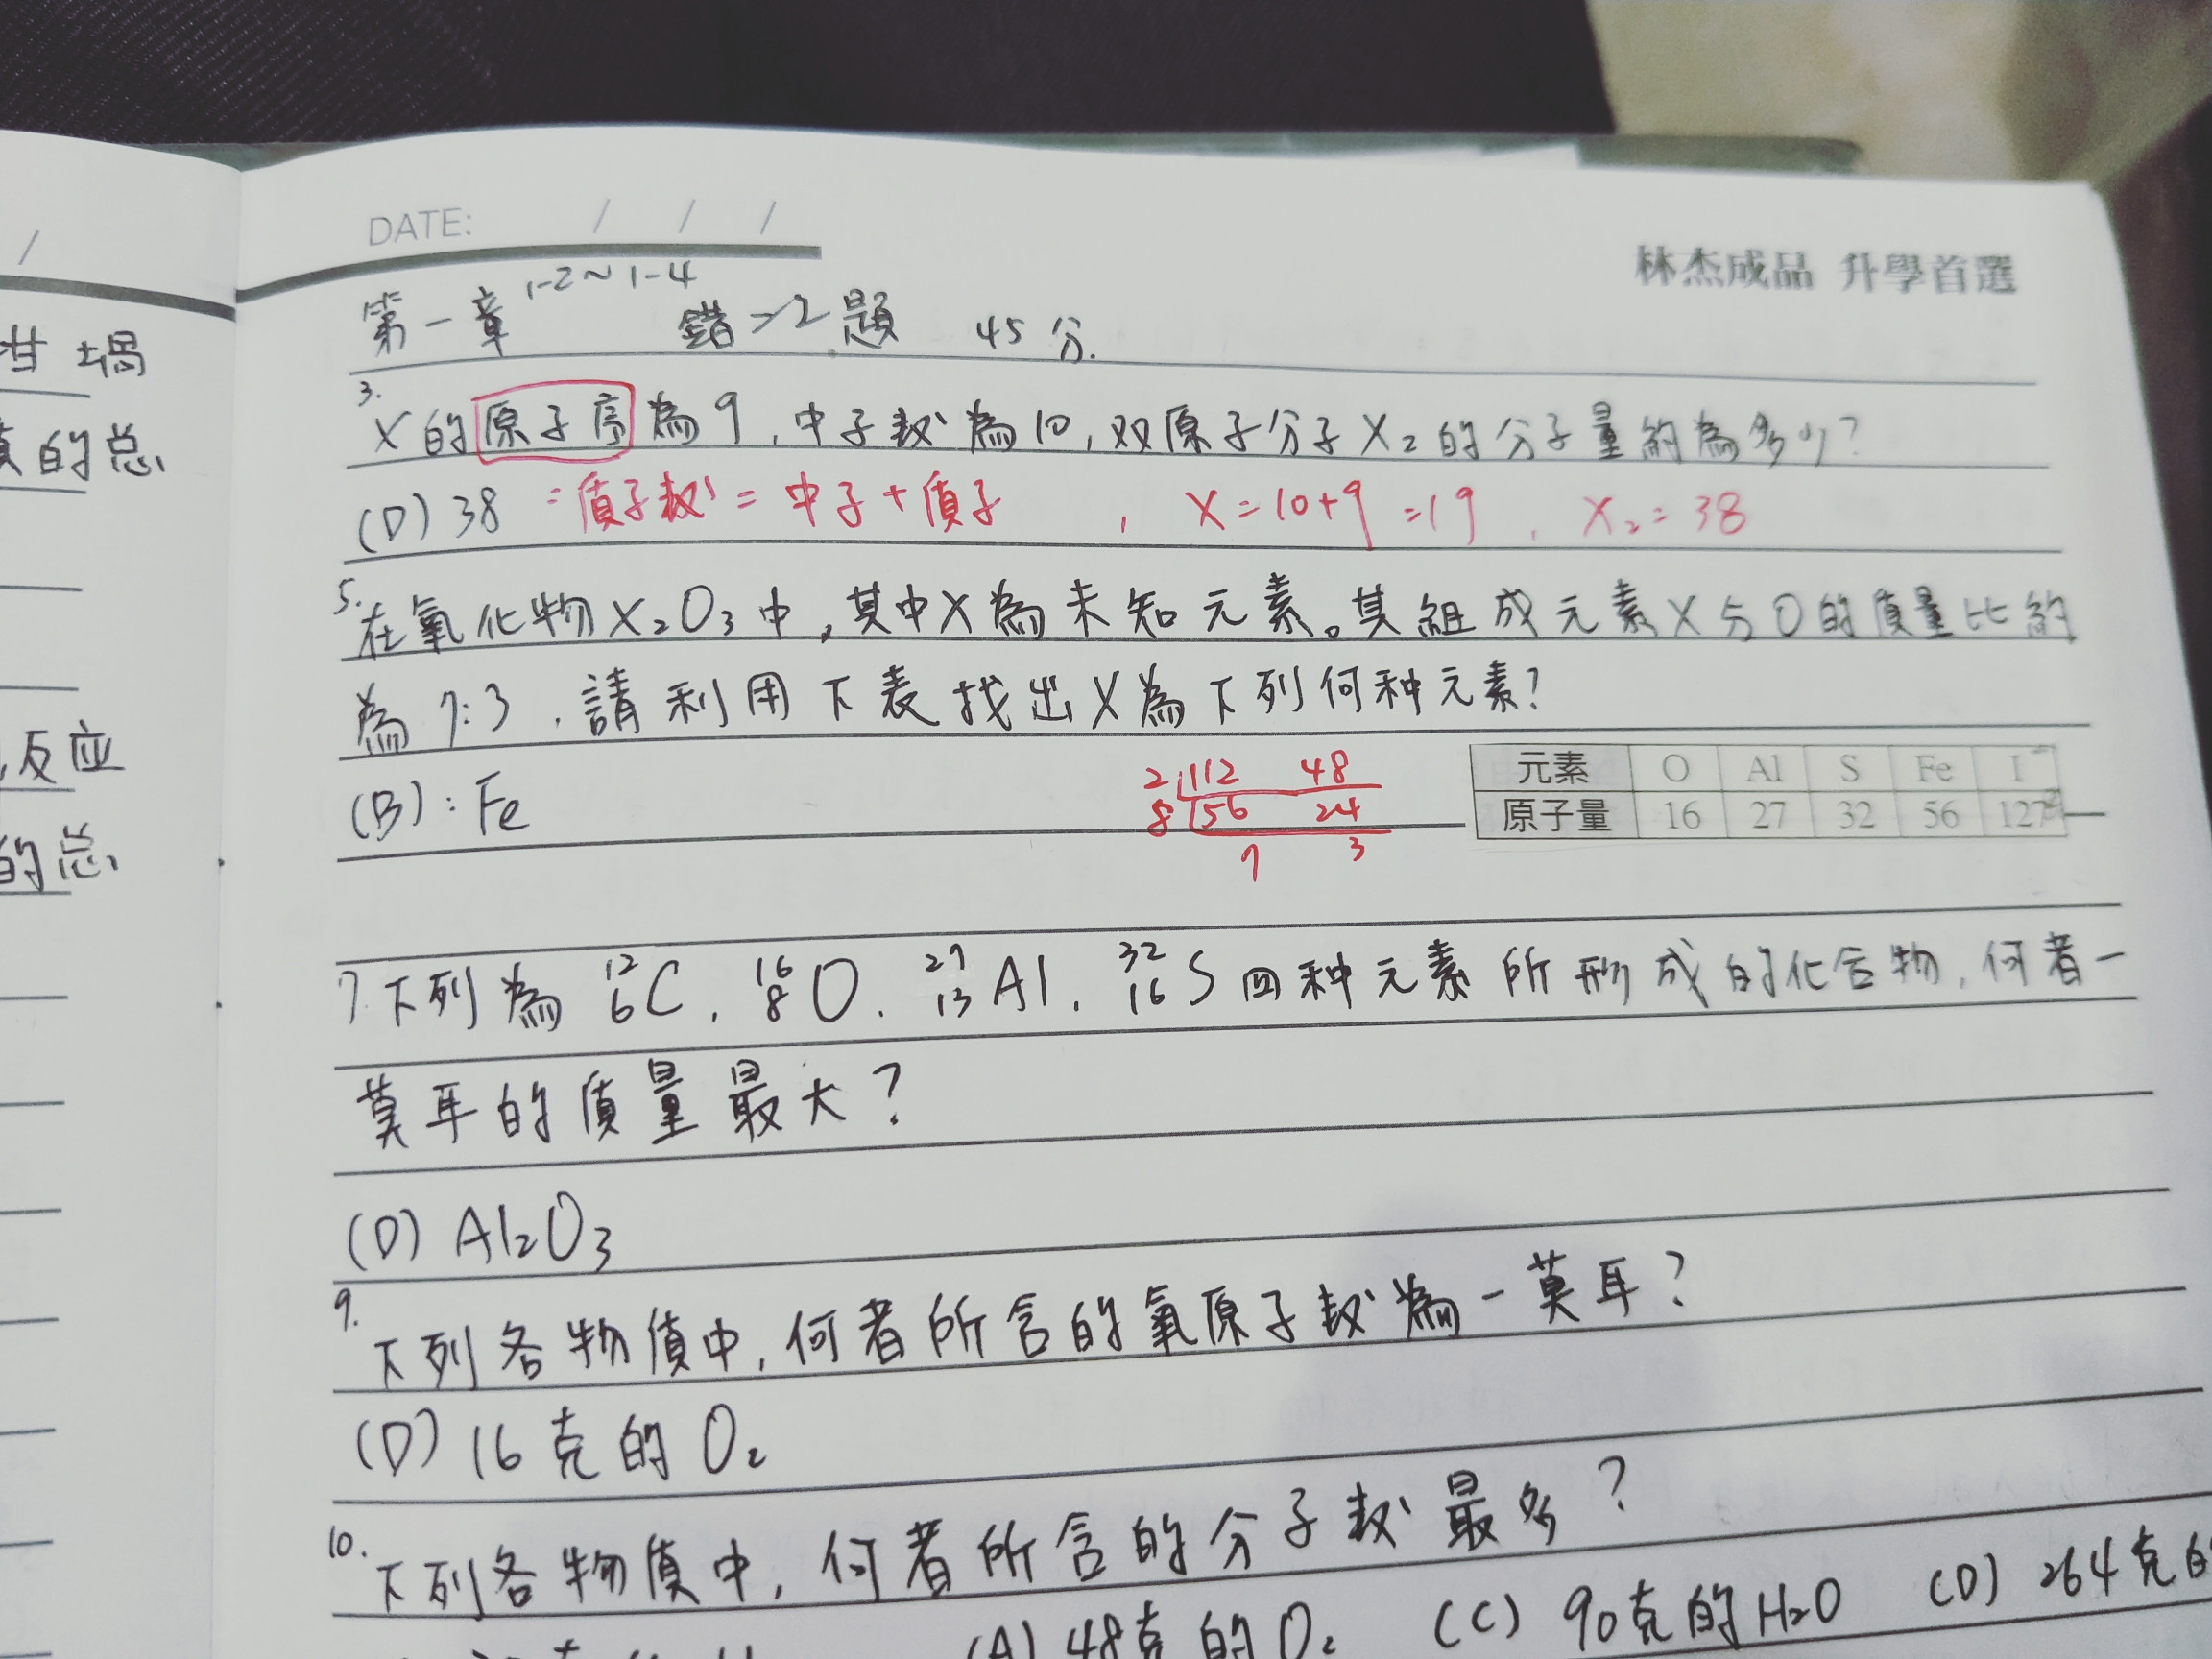 DATE: / / /
林杰成品 升學首選
第一章 1-2~1-4 錯 題 45分.
3.
X的原子序為9,中子数為10,双原子分子X₂的分子量約為多少?
(D) 38 =質子数=中子+質子 , X=10+9=19 , X₂=38
5.在氧化物X₂O₃中,其中X為未知元素。其組成元素X与O的質量比約
為7:3,請利用下表找出X為下列何种元素?
(B):Fe
2 112 48
8 56 24
7 3
元素 O Al S Fe I
原子量 16 27 32 56 127
7.下列為 ¹²₆C, ¹⁶₈O, ²⁷₁₃Al, ³²₁₆S 四种元素所形成的化合物,何者一
莫耳的質量最大?
(D) Al₂O₃
9.
下列各物質中,何者所含的氧原子数為一莫耳?
(D) 16克的O₂
10.
下列各物質中,何者所含的分子数最多?
(A) 48克的O₂ (C) 90克的H₂O (D) 264克的
/
甘堝
的总
反应
的总